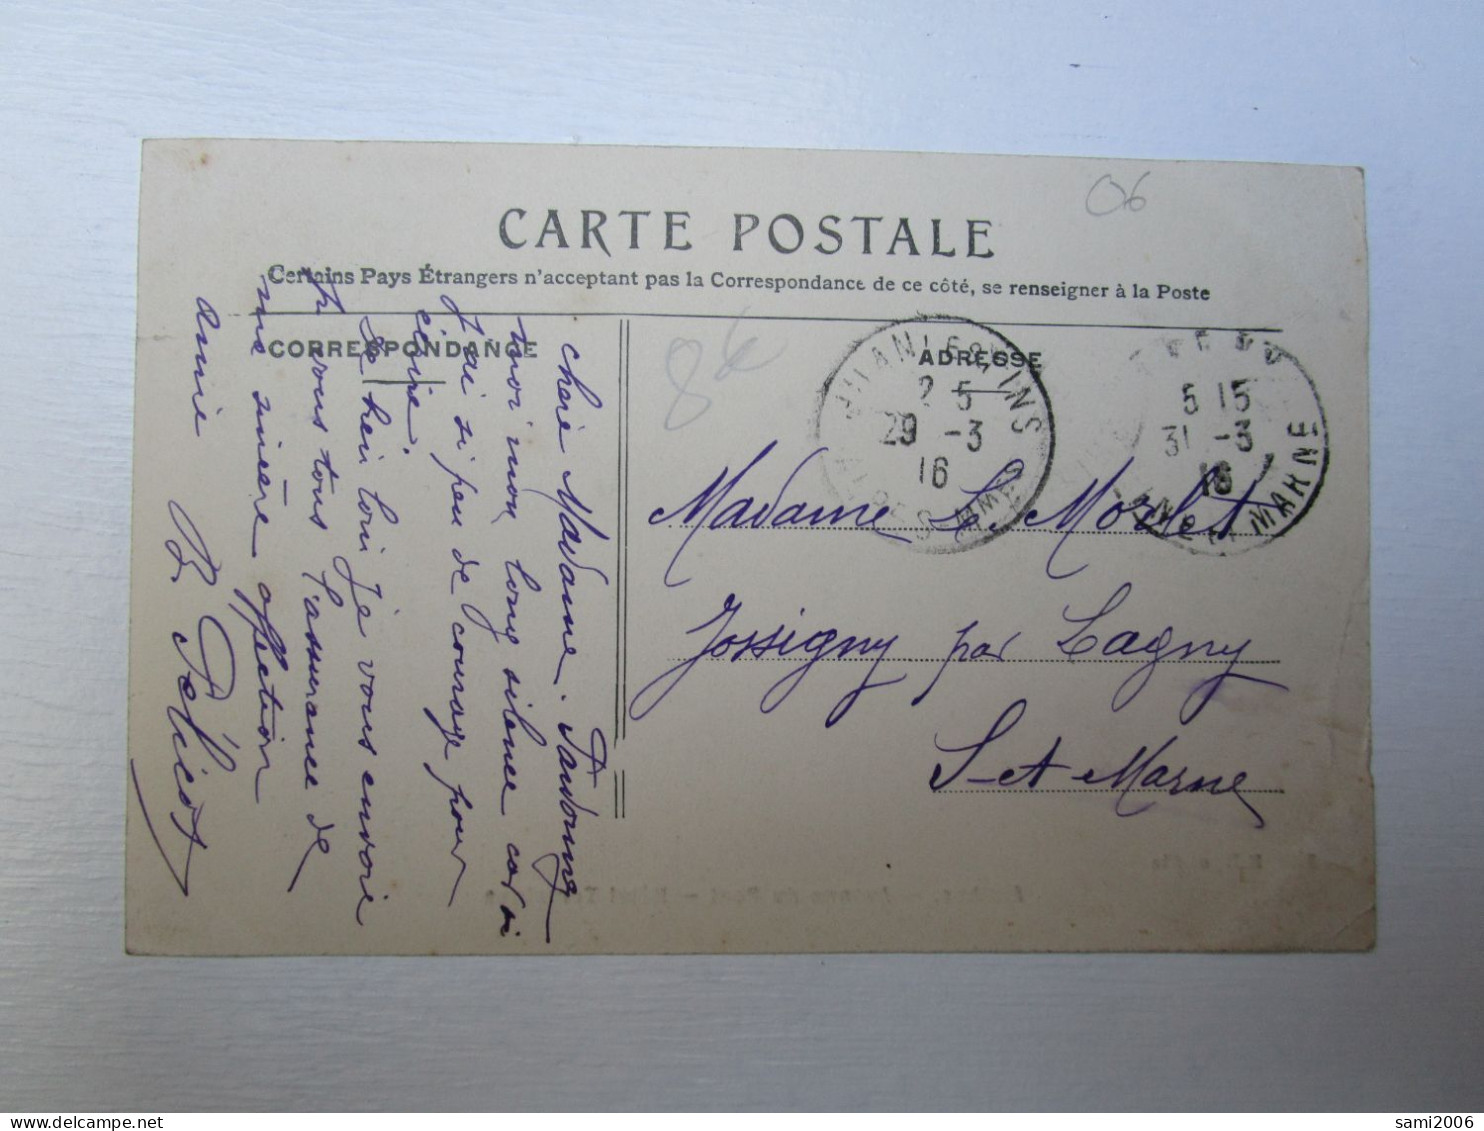 06
CARTE POSTALE
Certains Pays Étrangers n'acceptant pas la Correspondance de ce côté, se renseigner à la Poste
CORRESPONDANCE
ADRESSE
8€
chère Madame. Pardonnez
moi mon long silence car si
J'ai si peu de courage pour
écrire.
De bien loin je vous envoie
à vous tous l'assurance de
ma sincère affection
amie
B. Pelicot
JUAN LES PINS
2 5
29 -3
16
ALPES MMES
5 15
31 -3
16
SEINE ET MARNE
Madame L. Morlet
Jossigny par Lagny
S-et Marne
sami2006